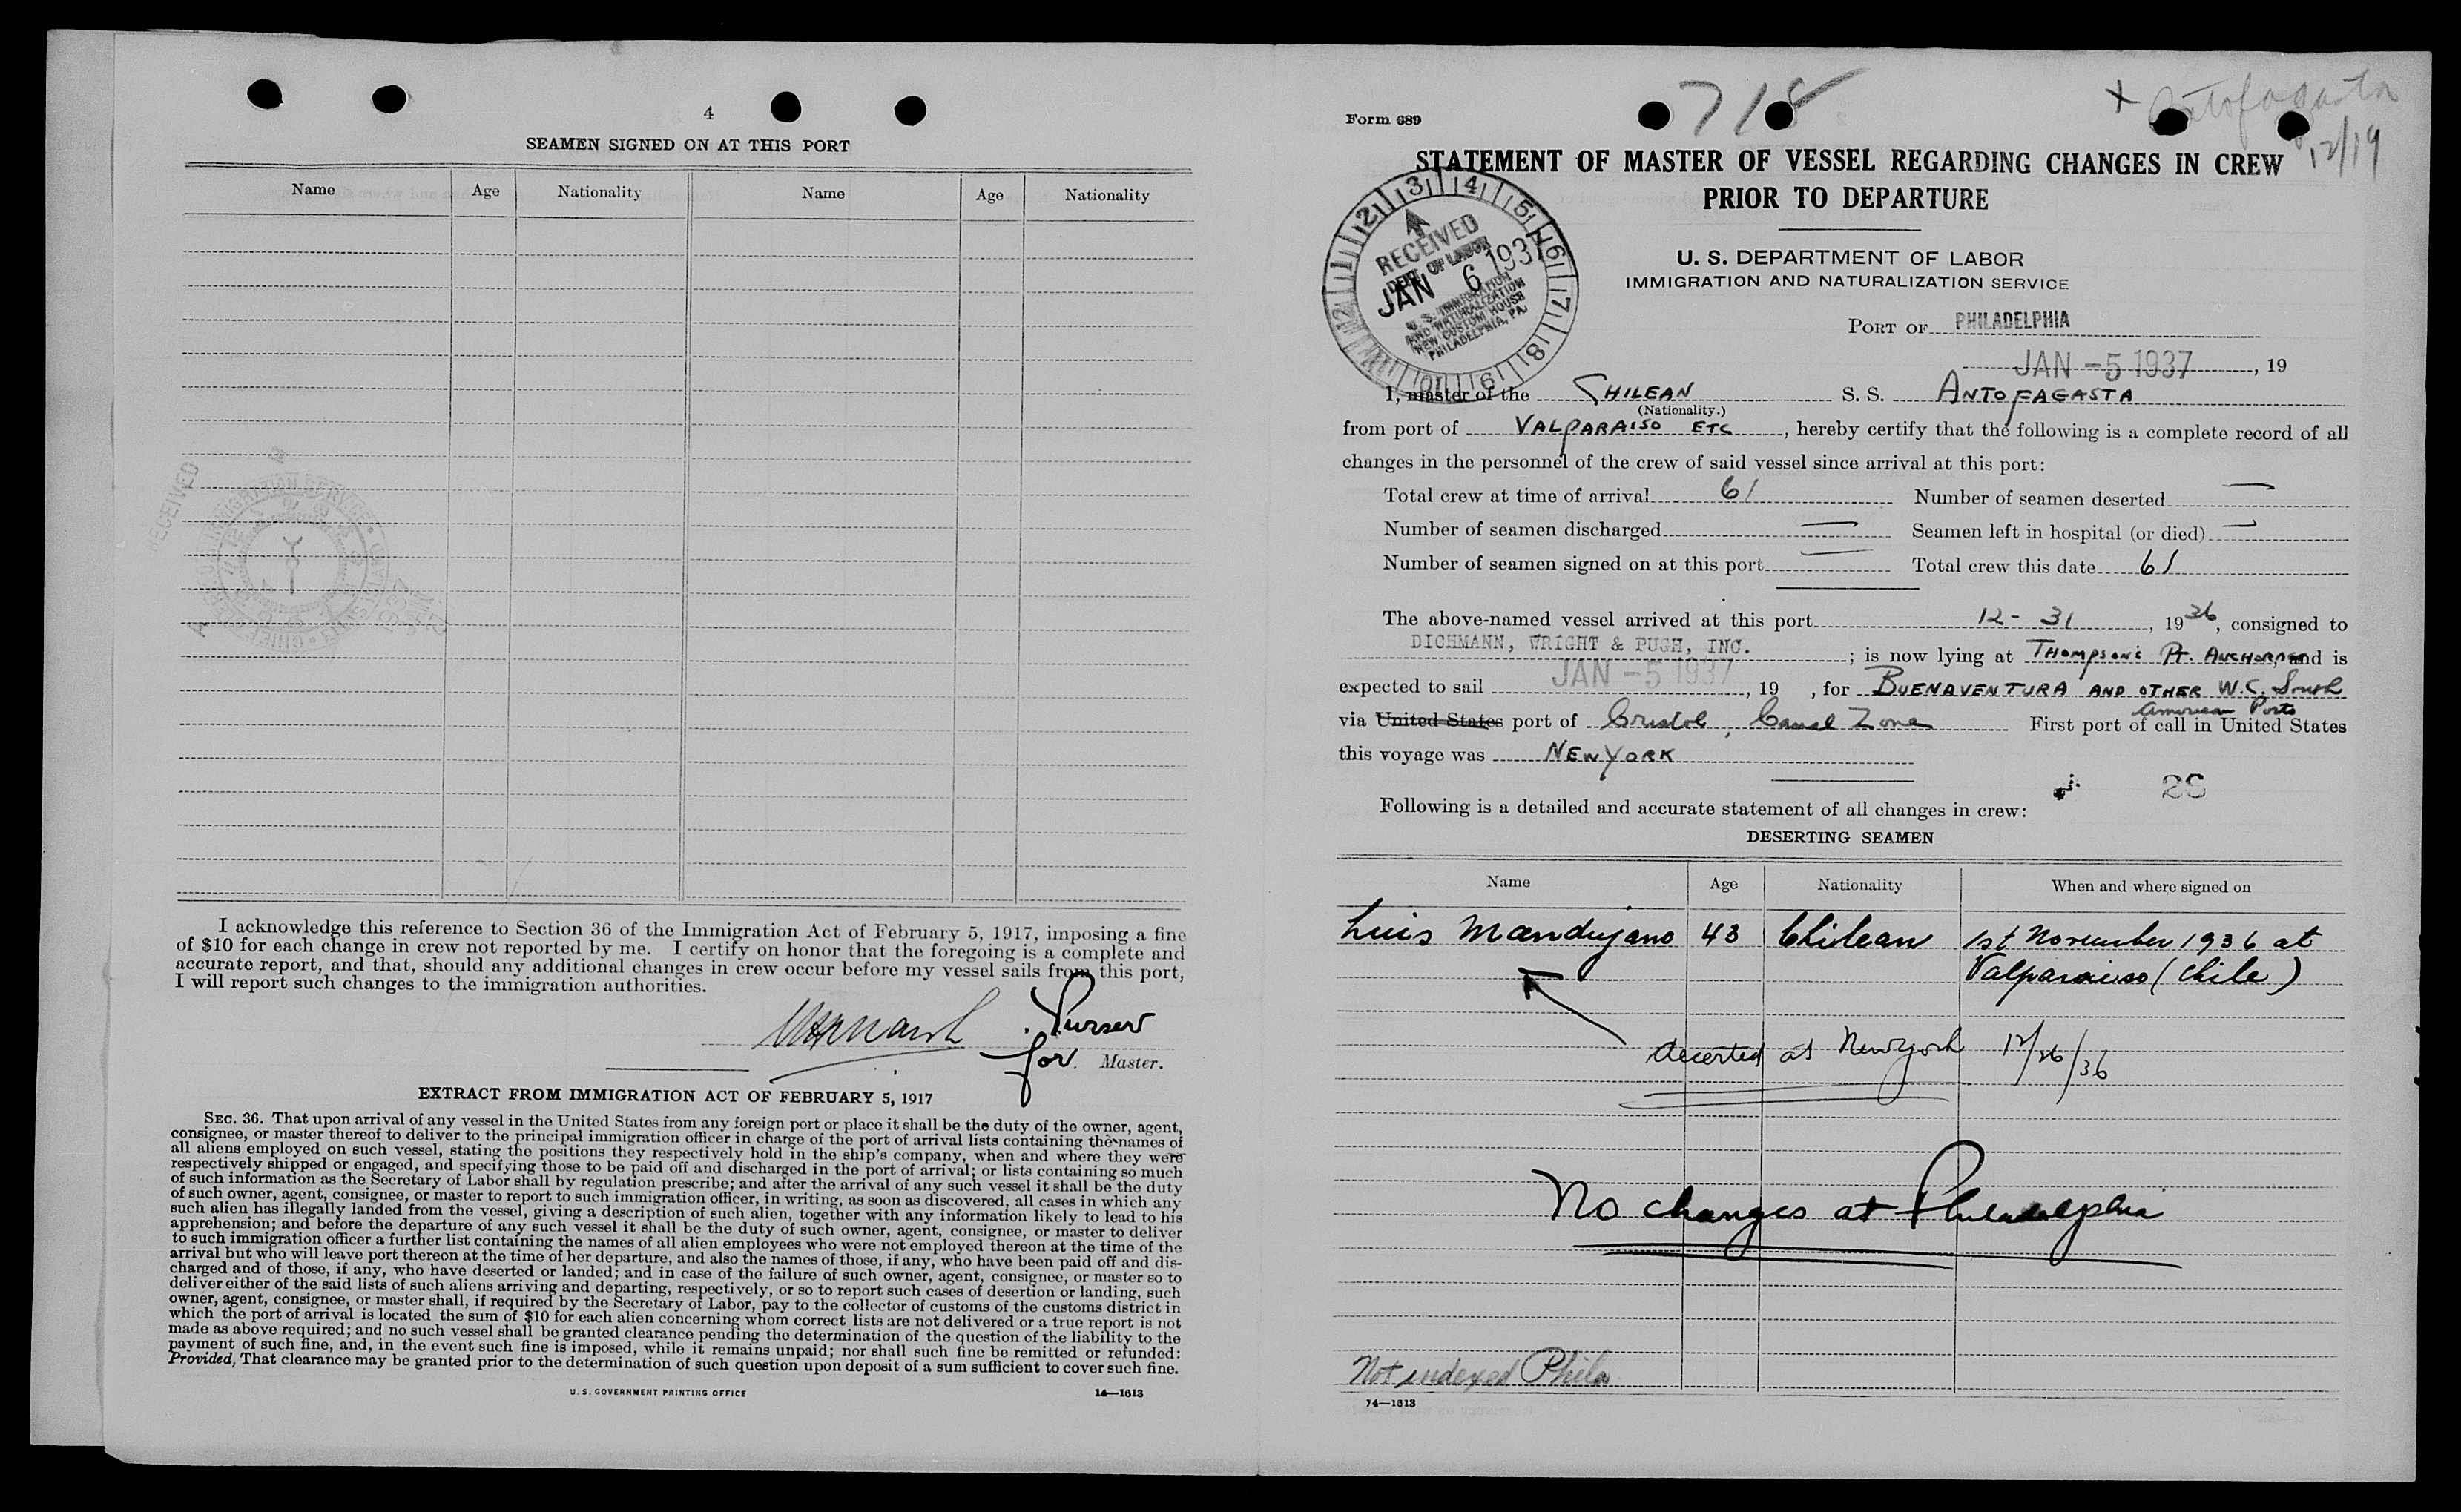 4
SEAMEN SIGNED ON AT THIS PORT
Name Age Nationality Name Age Nationality
RECEIVED
I acknowledge this reference to Section 36 of the Immigration Act of February 5, 1917, imposing a fine
of $10 for each change in crew not reported by me. I certify on honor that the foregoing is a complete and
accurate report, and that, should any additional changes in crew occur before my vessel sails from this port,
I will report such changes to the immigration authorities.
Purser
for Master.
EXTRACT FROM IMMIGRATION ACT OF FEBRUARY 5, 1917
SEC. 36. That upon arrival of any vessel in the United States from any foreign port or place it shall be the duty of the owner, agent,
consignee, or master thereof to deliver to the principal immigration officer in charge of the port of arrival lists containing the names of
all aliens employed on such vessel, stating the positions they respectively hold in the ship's company, when and where they were
respectively shipped or engaged, and specifying those to be paid off and discharged in the port of arrival; or lists containing so much
of such information as the Secretary of Labor shall by regulation prescribe; and after the arrival of any such vessel it shall be the duty
of such owner, agent, consignee, or master to report to such immigration officer, in writing, as soon as discovered, all cases in which any
such alien has illegally landed from the vessel, giving a description of such alien, together with any information likely to lead to his
apprehension; and before the departure of any such vessel it shall be the duty of such owner, agent, consignee, or master to deliver
to such immigration officer a further list containing the names of all alien employees who were not employed thereon at the time of the
arrival but who will leave port thereon at the time of her departure, and also the names of those, if any, who have been paid off and dis-
charged and of those, if any, who have deserted or landed; and in case of the failure of such owner, agent, consignee, or master so to
deliver either of the said lists of such aliens arriving and departing, respectively, or so to report such cases of desertion or landing, such
owner, agent, consignee, or master shall, if required by the Secretary of Labor, pay to the collector of customs of the customs district in
which the port of arrival is located the sum of $10 for each alien concerning whom correct lists are not delivered or a true report is not
made as above required; and no such vessel shall be granted clearance pending the determination of the question of the liability to the
payment of such fine, and, in the event such fine is imposed, while it remains unpaid; nor shall such fine be remitted or refunded:
Provided, That clearance may be granted prior to the determination of such question upon deposit of a sum sufficient to cover such fine.
U. S. GOVERNMENT PRINTING OFFICE 14—1613
Form 689 718 x Antofagasta
12/19
STATEMENT OF MASTER OF VESSEL REGARDING CHANGES IN CREW
PRIOR TO DEPARTURE
RECEIVED
DEPT. OF LABOR
JAN 6 1937
U. S. IMMIGRATION
AND NATURALIZATION
NEW CUSTOM HOUSE
PHILADELPHIA, PA.
U. S. DEPARTMENT OF LABOR
IMMIGRATION AND NATURALIZATION SERVICE
PORT OF PHILADELPHIA
JAN -5 1937, 19
I, master of the CHILEAN S. S. ANTOFAGASTA
(Nationality.)
from port of VALPARAISO ETC, hereby certify that the following is a complete record of all
changes in the personnel of the crew of said vessel since arrival at this port:
Total crew at time of arrival 61 Number of seamen deserted —
Number of seamen discharged — Seamen left in hospital (or died) —
Number of seamen signed on at this port — Total crew this date 61
The above-named vessel arrived at this port 12-31, 1936, consigned to
DICHMANN, WRIGHT & PUGH, INC.; is now lying at THOMPSON'S PT. ANCHORAGE, and is
expected to sail JAN -5 1937, 19 , for BUENAVENTURA AND OTHER W.C. South
American Ports
via United States port of Cristol, Canal Zone First port of call in United States
this voyage was NEW YORK
26
Following is a detailed and accurate statement of all changes in crew:
DESERTING SEAMEN
Name Age Nationality When and where signed on
Luis Mandujano 43 Chilean 1st November 1936 at
Valparaiso (Chile)
deserted at New York 12/26/36
No changes at Philadelphia
Not indexed Phila
14—1613